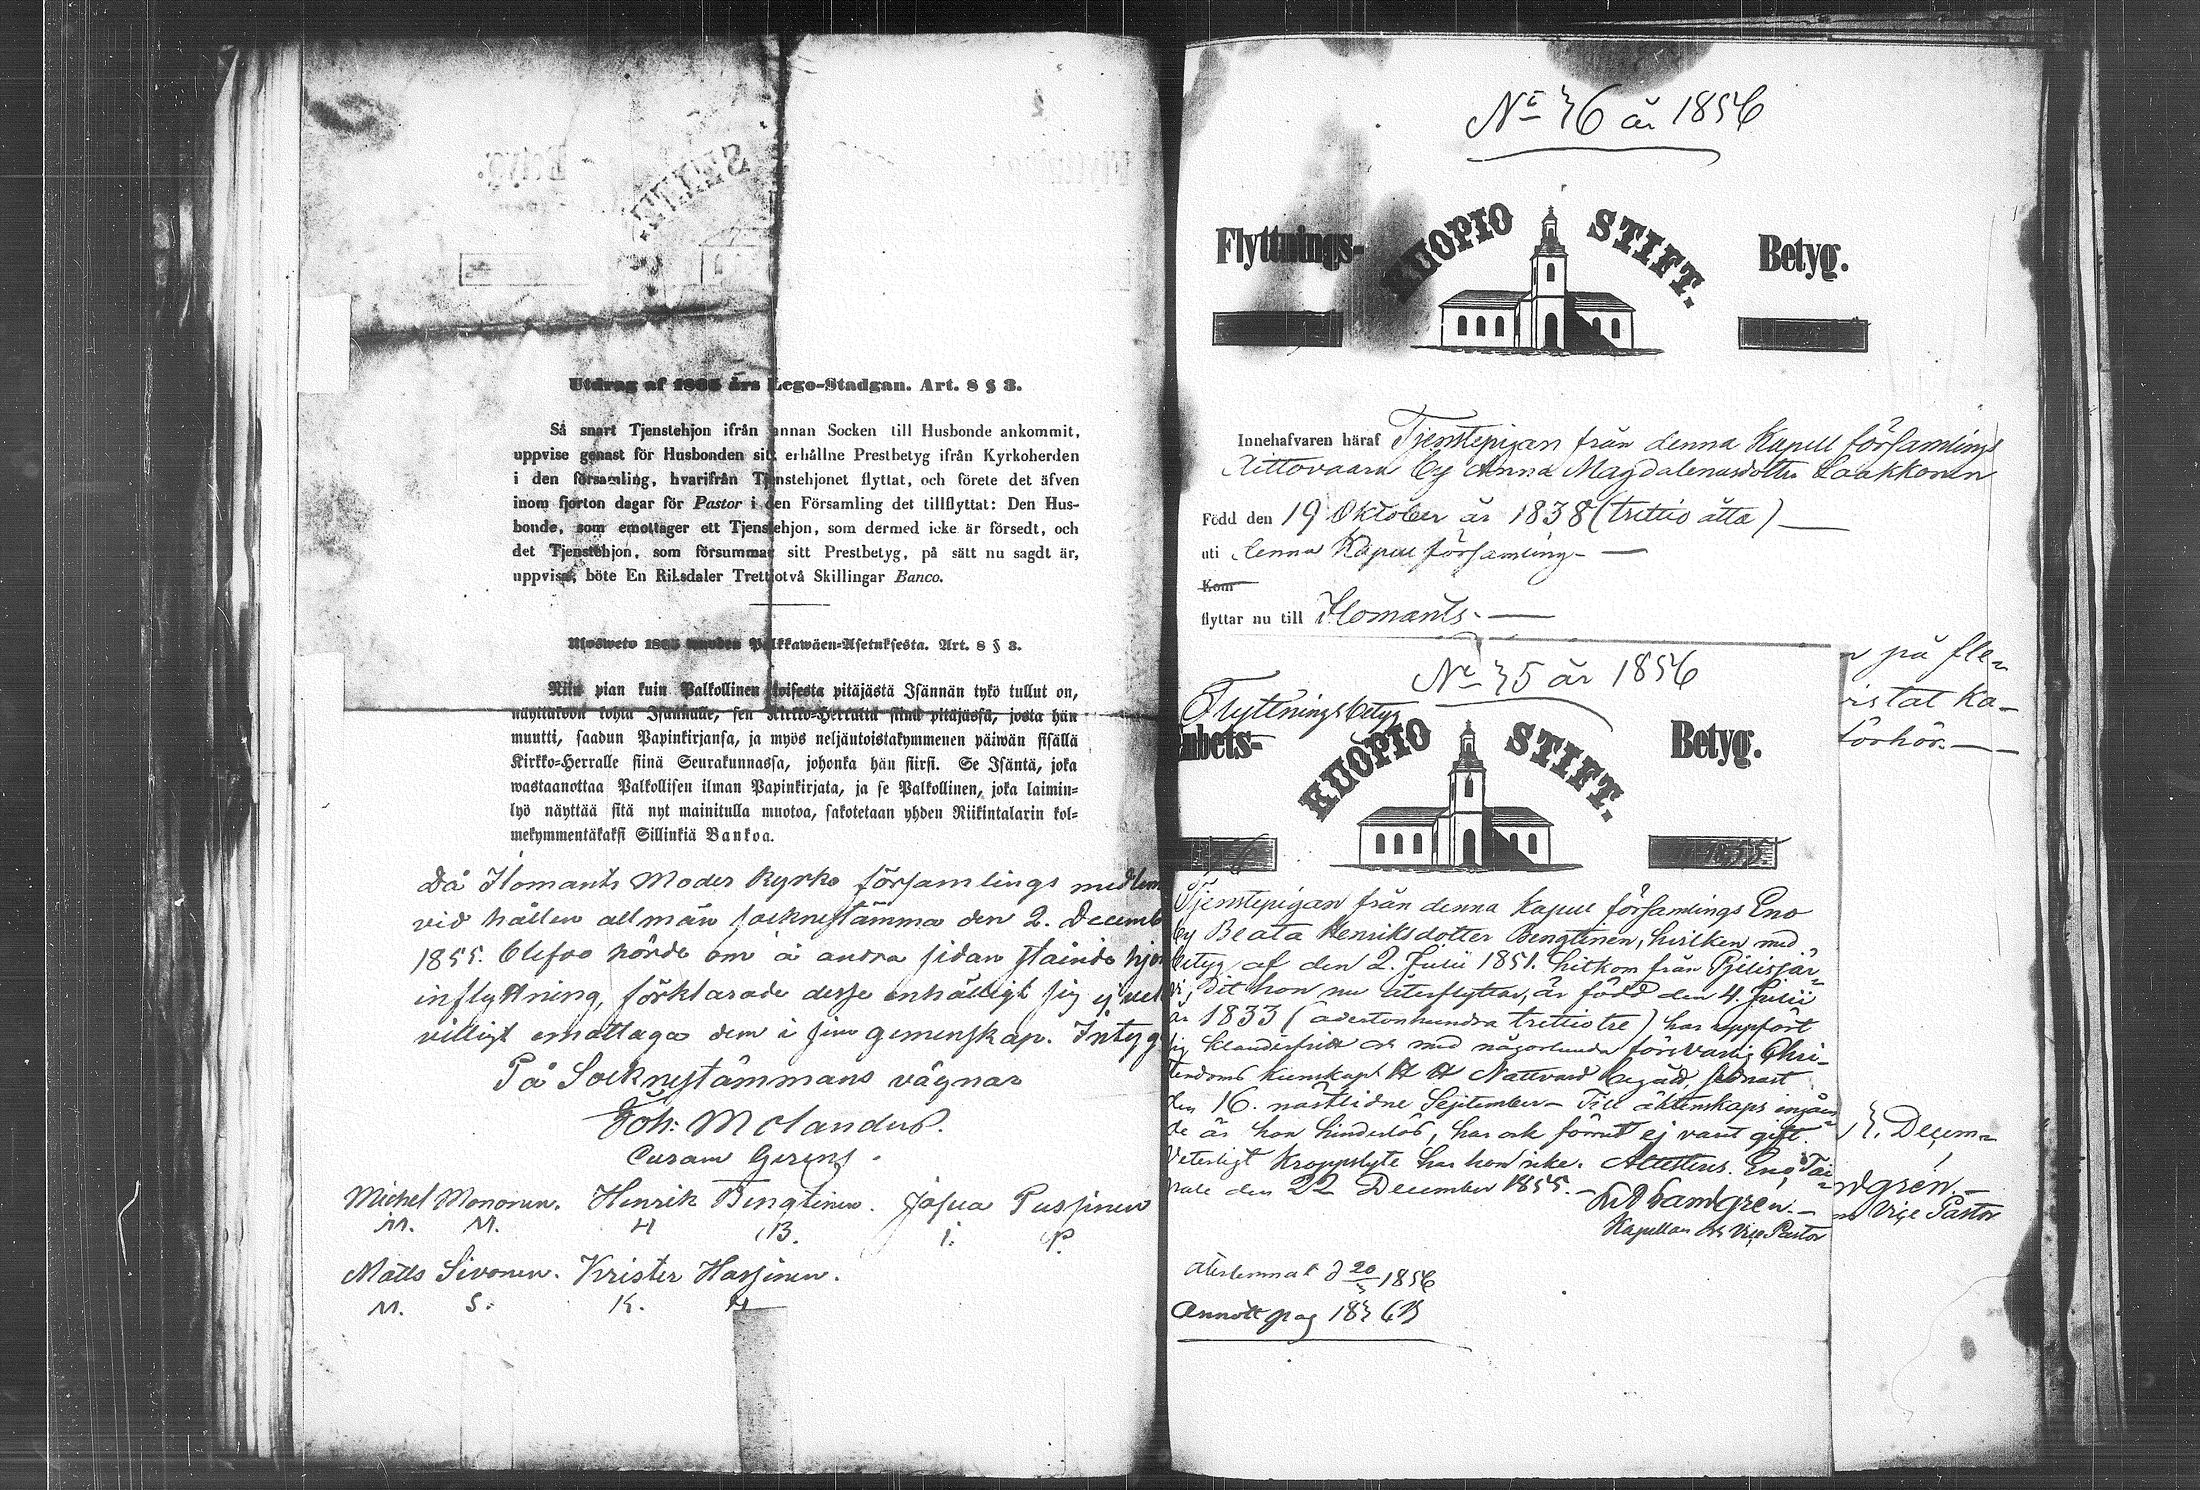 Utdrag af 1865 års Lego-Stadgan. Art. 8 § 3.
Så snart Tjenstehjon ifrån annan Socken till Husbonde ankommit,
uppvise genast för Husbonden sitt erhållne Prestbetyg ifrån Kyrkoherden
i den församling, hvarifrån Tjenstehjonet flyttat, och förete det äfven
inom fjorton dagar för Pastor i den Församling det tillflyttat: Den Hus-
bonde, som emottager ett Tjenstehjon, som dermed icke är försedt, och
det Tjenstehjon, som försummar sitt Prestbetyg, på sätt nu sagdt är,
uppvisa, böte En Riksdaler Trettiotvå Skillingar Banco.
Palkkawäen-Asetuksesta. Art. 8 § 3.
Niin pian kuin Palkollinen toisesta pitäjästä Isännän tykö tullut on,
näyttäköön kohta Isännälle, sen Kirkko-Herralta siinä pitäjässä, josta hän
muutti, saadun Papinkirjansa, ja myös neljäntoistakymmenen päiwän sisällä
Kirkko-Herralle siinä Seurakunnassa, johonka hän siirsi. Se Isäntä, joka
wastaanottaa Palkollisen ilman Papinkirjata, ja se Palkollinen, joka laimin-
lyö näyttää sitä nyt mainitulla muotoa, sakotetaan yhden Riikintalarin kol-
mekymmentäkaksi Sillinkiä Bankoa.
Då Ilomants Moder Kyrko församlings medlem
vid hållen allmän socknestämma den 2. Decemb
1855. blefvo hörde om å andra sidan stående hjo
inflyttning, förklarade desse enhälligt sig ej vel
villigt emottaga dem i sin gemenskap. Intyg
På Socknestämmans vägnar
Joh: Molander.
Curam Gerens.
Michel Mononen. Henrik Bengtinen. Josua Pussinen
M. M. H B. J. P.
Matts Sivonen. Krister Hassinen.
M. S. K. H
No 36 år 1856
Flyttnings- KUOPIO STIFT. Betyg.
Innehafvaren häraf Tjenstepigan från denna Kapell församlings
by Anna Magdalenasdotter Laakkonen
Född den 19 Oktober år 1838 (trettio åtta)
uti denna Kapell församling
Kom
flyttar nu till Ilomants.
No 35 år 1856
Flyttningsbetyg
nbets- KUOPIO STIFT. Betyg.
Tjenstepigan från denna Kapell församlings Eno
by Beata Henriksdotter Bengtinen, hvilken med
betyg af den 2. Julii 1851. hitkom från Pielisjär-
vi, dit hon nu återflyttar, är född den 4. Julii
år 1833 (adertonhundra trettiotre) har uppfört
sig klanderfritt och med någorlunda försvarlig Chri-
tendoms kunskap Nattvard begått, sednast
den 16. nästlidne September. Till äktenskaps ingåen-
de är hon hinderlös, har ock förrut ej varit gift.
Veterligt kroppslyte har hon icke. Attesteras. Eno, Tai-
pale den 22 December 1855.
Landgren.
Kapellan och Vice Pastor
Återlemnat d 20/3 1856
Annött pag 183
n på fle-
ristat ka-
förhör.
3. Decem-
ndgrén.
Vice Pastor